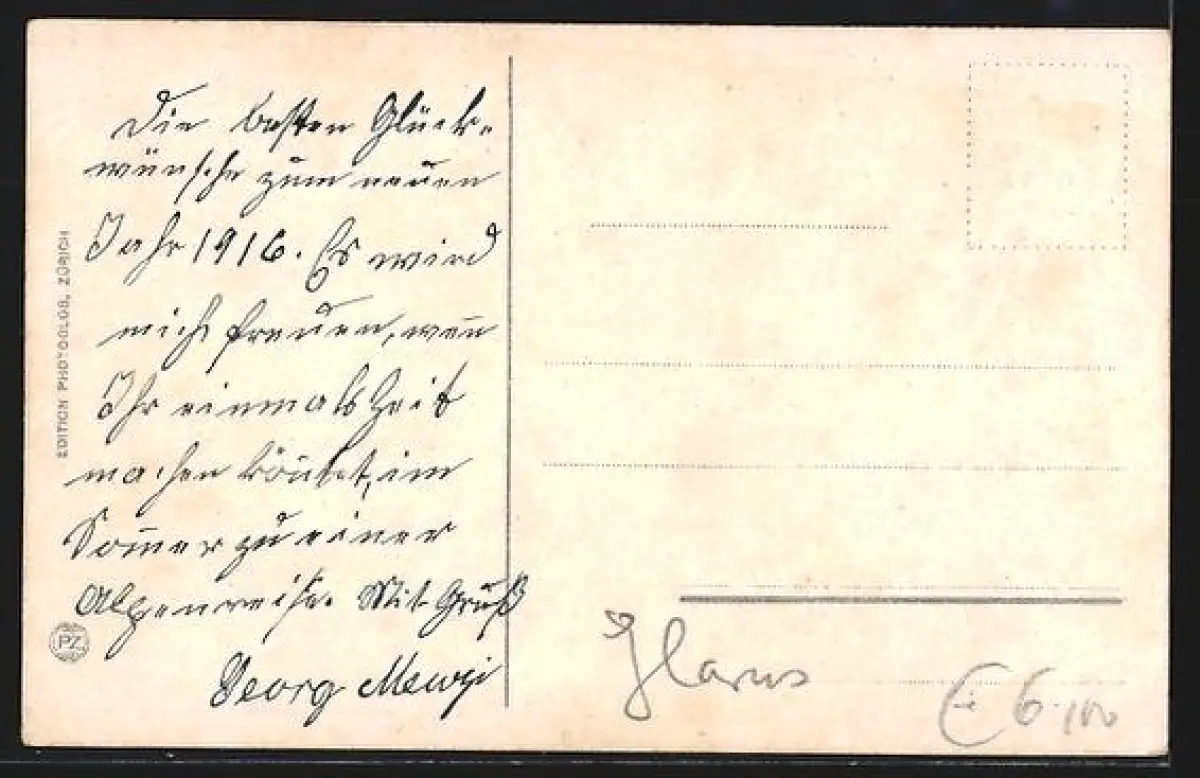 Die besten Glück-
wünsche zum neuen
Jahr 1916. Es wird
mich freuen, wen̄
Ihr einmal Zeit
machen kön̄tet, im
Som̄er zu einer
Alpenreise. Mit Gruß
Georg
EDITION PHOTOGLOB, ZÜRICH
PZ
Glarus
6.